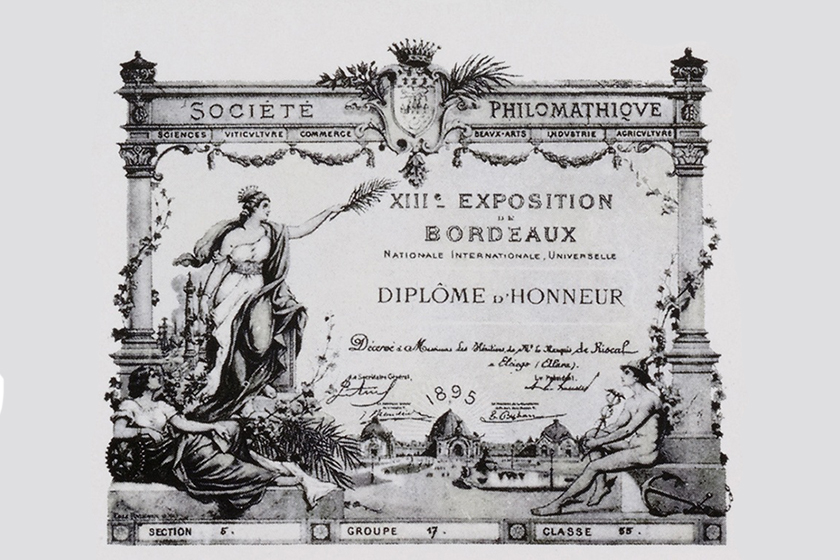 SOCIÉTÉ PHILOMATHIQVE
SCIENCES VITICVLTVRE COMMERCE BEAUX-ARTS INDVSTRIE AGRICVLTVRE
XIIIE EXPOSITION
DE
BORDEAUX
NATIONALE INTERNATIONALE, UNIVERSELLE
DIPLÔME D'HONNEUR
Décerné à Messieurs les Héritiers de Mr le Marquis de Riscal
à Elciego (Alava).
Le Secrétaire Général, Le Président,
1895
SECTION 5. GROUPE 17. CLASSE 55.